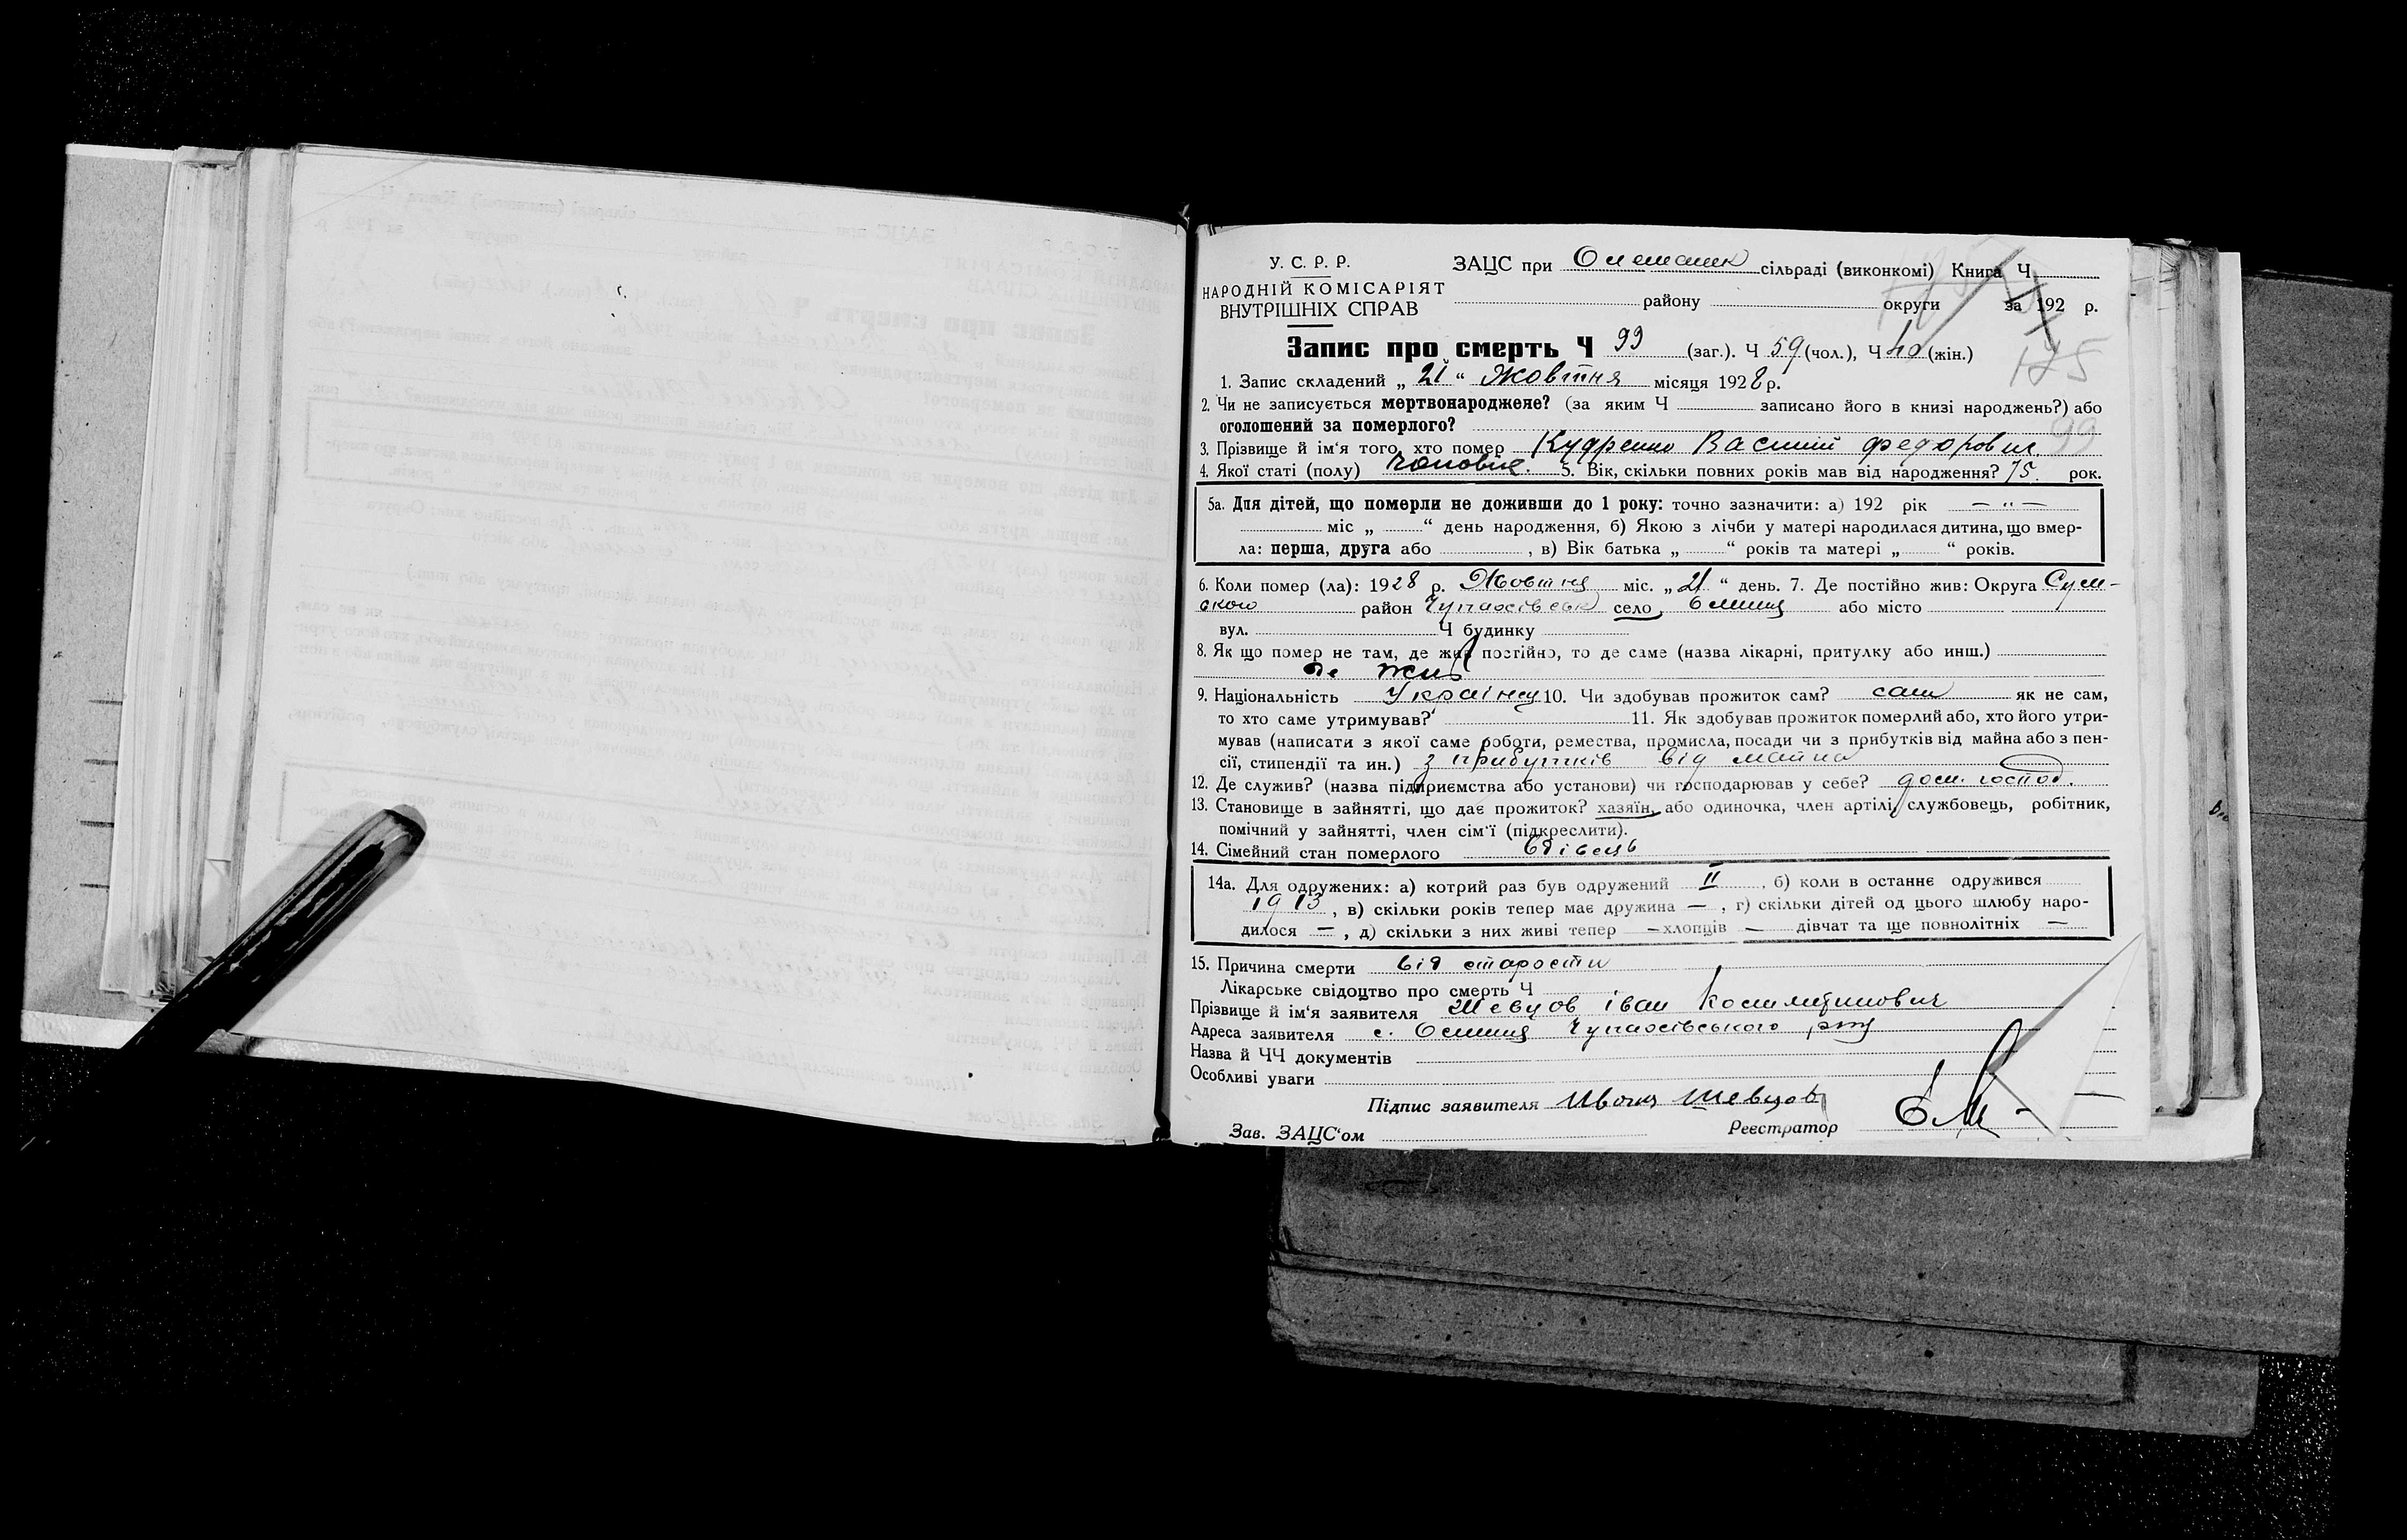 У. С. Р. Р.
НАРОДНІЙ КОМІСАРІЯТ
ВНУТРІШНІХ СПРАВ
ЗАЦС при сільраді (виконкомі) Книга Ч
району округи за 192 р.
175
Запис про смерть Ч 99 (заг.). Ч 59 (чол.), Ч 40 (жін.)
1. Запис складений „ 21 “ Жовтня місяця 1928 р.
2. Чи не записується мертвонароджене? (за яким Ч записано його в книзі народжень?) або
оголошений за померлого?
99
3. Прізвище й ім‘я того, хто помер Кудренко Василий Федорович.
4. Якої статі (полу) чоловіч. 5. Вік, скільки повних років мав від народження? 75. рок.
5а. Для дітей, що померли не доживши до 1 року: точно зазначити: а) 192 рік — „ —
міс „ “ день народження, б) Якою з лічби у матері народилася дитина, що вмер-
ла: перша, друга або , в) Вік батька „ “ років та матері „ “ років.
6. Коли помер (ла): 1928 р. Жовтня міс. „ 21 “ день. 7. Де постійно жив: Округа Сум-
ского район село або місто
вул. Ч будинку
8. Як що помер не там, де жив постійно, то де саме (назва лікарні, притулку або инш.)
де жив
9. Національність Українец 10. Чи здобував прожиток сам? сам як не сам,
то хто саме утримував? 11. Як здобував прожиток померлий або, хто його утри-
мував (написати з якої саме роботи, ремества, промисла, посади чи з прибутків від майна або з пен-
сії, стипендії та ин.) з прибутків від майна
12. Де служив? (назва підприємства або установи) чи господарював у себе? дом. господ.
13. Становище в зайнятті, що дає прожиток? хазяїн, або одиночка, член артілі, службовець, робітник,
помічний у зайнятті, член сім‘ї (підкреслити).
14. Сімейний стан померлого Вдівець
14а. Для одружених: а) котрий раз був одружений II , б) коли в останнє одружився
1913 , в) скільки років тепер має дружина — , г) скільки дітей од цього шлюбу наро-
дилося — , д) скільки з них живі тепер — хлопців — дівчат та ще повнолітніх —
15. Причина смерти від старости
Лікарське свідоцтво про смерть Ч
Прізвище й ім‘я заявителя Шевцов Іван
Адреса заявителя с.
Назва й ЧЧ документів
Особливі уваги
Підпис заявителя Шевцов
Зав. ЗАЦС‘ом Реєстратор